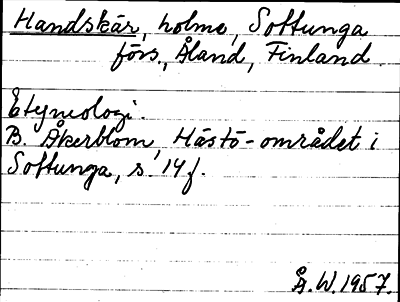 Handskär, holme, Sottunga
förs., Åland, Finland.
Etymologi.
B. Åkerblom, Hästö-området i
Sottunga, s. 14 f.
Å. W. 1957.